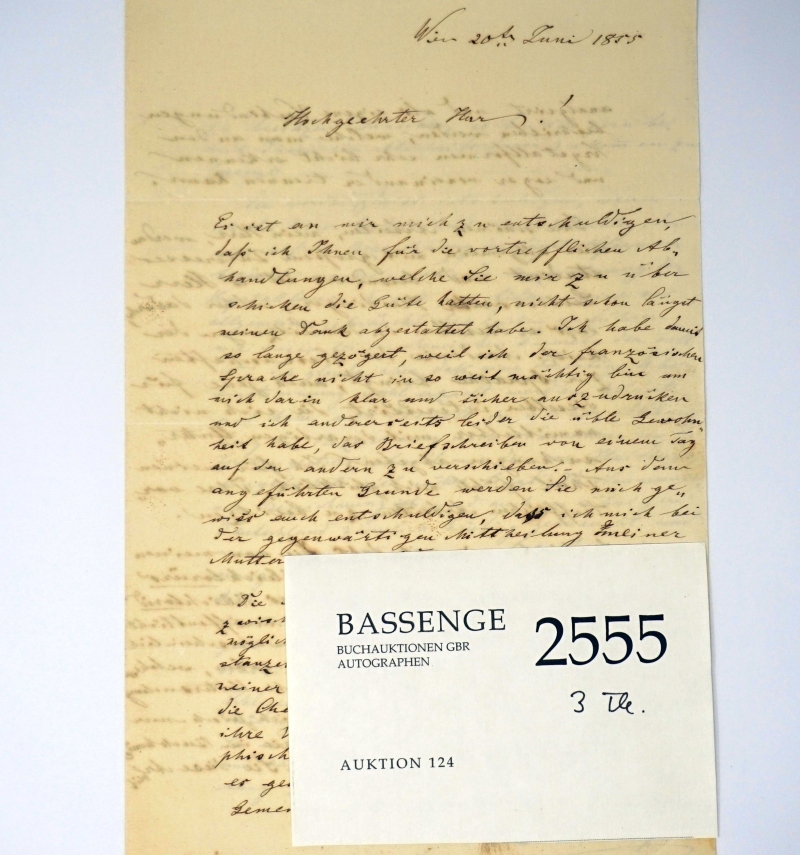 Wien 20ten Juni 1855
Hochgeehrter Herr!
Es ist an mir mich zu entschuldigen,
daß ich Ihnen für die vortrefflichen Ab-
handlungen, welche Sie mir zu über
schicken die Güte hatten, nicht schon längst
meinen Dank abgestattet habe. Ich habe damit
so lange gezögert, weil ich der französischen
Sprache nicht in so weit mächtig bin um
mich darin klar und sicher auszudrücken
und ich andererseits leider die üble Gewohn-
heit habe, das Briefschreiben von einem Tag
auf den andern zu verschieben. – Aus dem
angeführten Grunde werden Sie mich ge-
wiss auch entschuldigen, dass ich mich bei
der gegenwärtigen Mittheilung meiner
Mutter
Die
zwisch
möglich
stanze
meiner
die Che
ihre
phisch
es ge
Gemen
BASSENGE
BUCHAUKTIONEN GBR
AUTOGRAPHEN
2555
3 Tle.
AUKTION 124